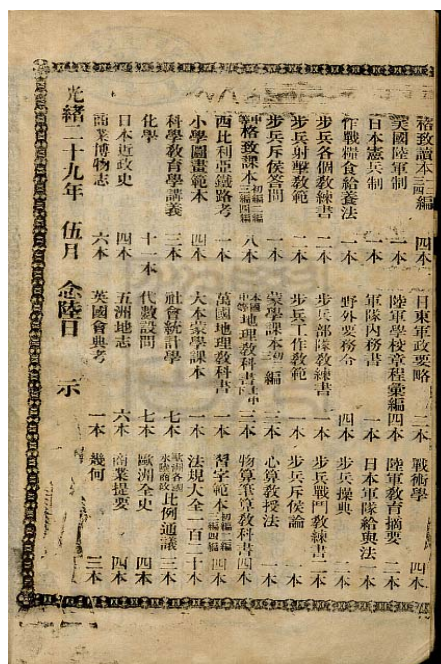 格致讀本三四編 四本 日東軍政要略 二本 戰術學 四本
美國陸軍制 一本 陸軍學校章程彙編 四本 陸軍教育摘要 二本
日本憲兵制 一本 軍隊內務書 一本 日本軍隊給與法 一本
作戰糧食給養法 一本 野外要務令 四本 步兵操典 二本
步兵各個教練書 二本 步兵部隊教練書 一本 步兵戰鬥教練書 二本
步兵射擊教範 一本 步兵工作教範 一本 步兵斥侯論 一本
步兵斥侯答問 一本 蒙學課本初編 本 心算教授法 一本
中等格致課本初編二編三編四編 八本 本國中等地理教科書上中下 本 物算筆算教科書 四本
西比利亞鐵路考 一本 萬國地理教科書 一本 習字範本初編二編三編四編 四本
小學圖畫範本 四本 大本蒙學課本 一本 法規大全 一百二十本
科學教育學講義 三本 社會統計學 七本 歐洲各國水陸商政比例通議 三本
化學 十一本 代數設問 七本 歐洲全史 四本
日本近政史 四本 五洲地志 六本 商業提要 四本
商業博物志 六本 英國會典考 一本 幾何 三本
光緒二十九年 伍月 念陸日 示